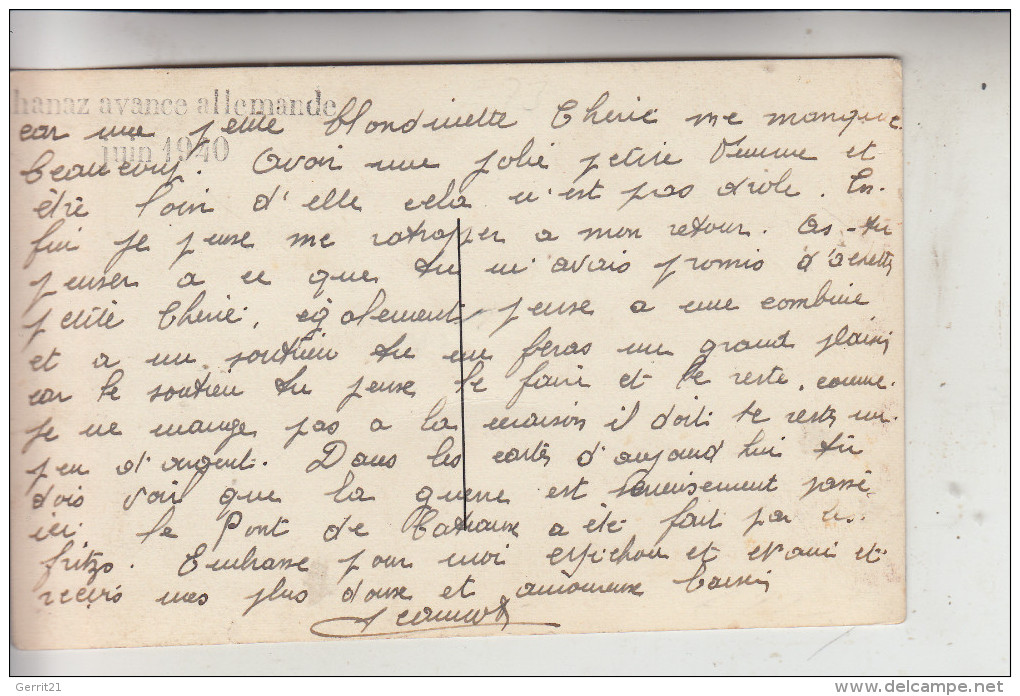 hanaz avance allemande
juin 1940
car une petite blondinette Cherie me manque
beaucoup. Avoir une jolie petite femme et
être loin d'elle cela n'est pas drole. En-
fin je pense me ratrapper a mon retour. As-tu
penser a ce que tu m'avais promis
petite Cherie, egalement pense a une combine
et a un soutien tu me feras un grand plaisir
car le soutien tu peux le faire et le reste. comme
je ne mange pas a la maison il doit te rester un
peu d'argent. Dans les cartes d'aujourd hui tu
dois voir que la guerre est serieusement passé
ici le Pont de a été fait par les
fritzs. Embrasse pour moi et et
reçois mes plus doux et amoureux baisers
Gerrit21
www.delcampe.net